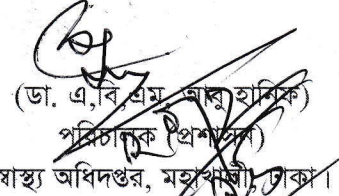 (ডা. এ,বি,এম, আবু হানিফ)
পরিচালক (প্রশাসন)
স্বাস্থ্য অধিদপ্তর, মহাখালী, ঢাকা।